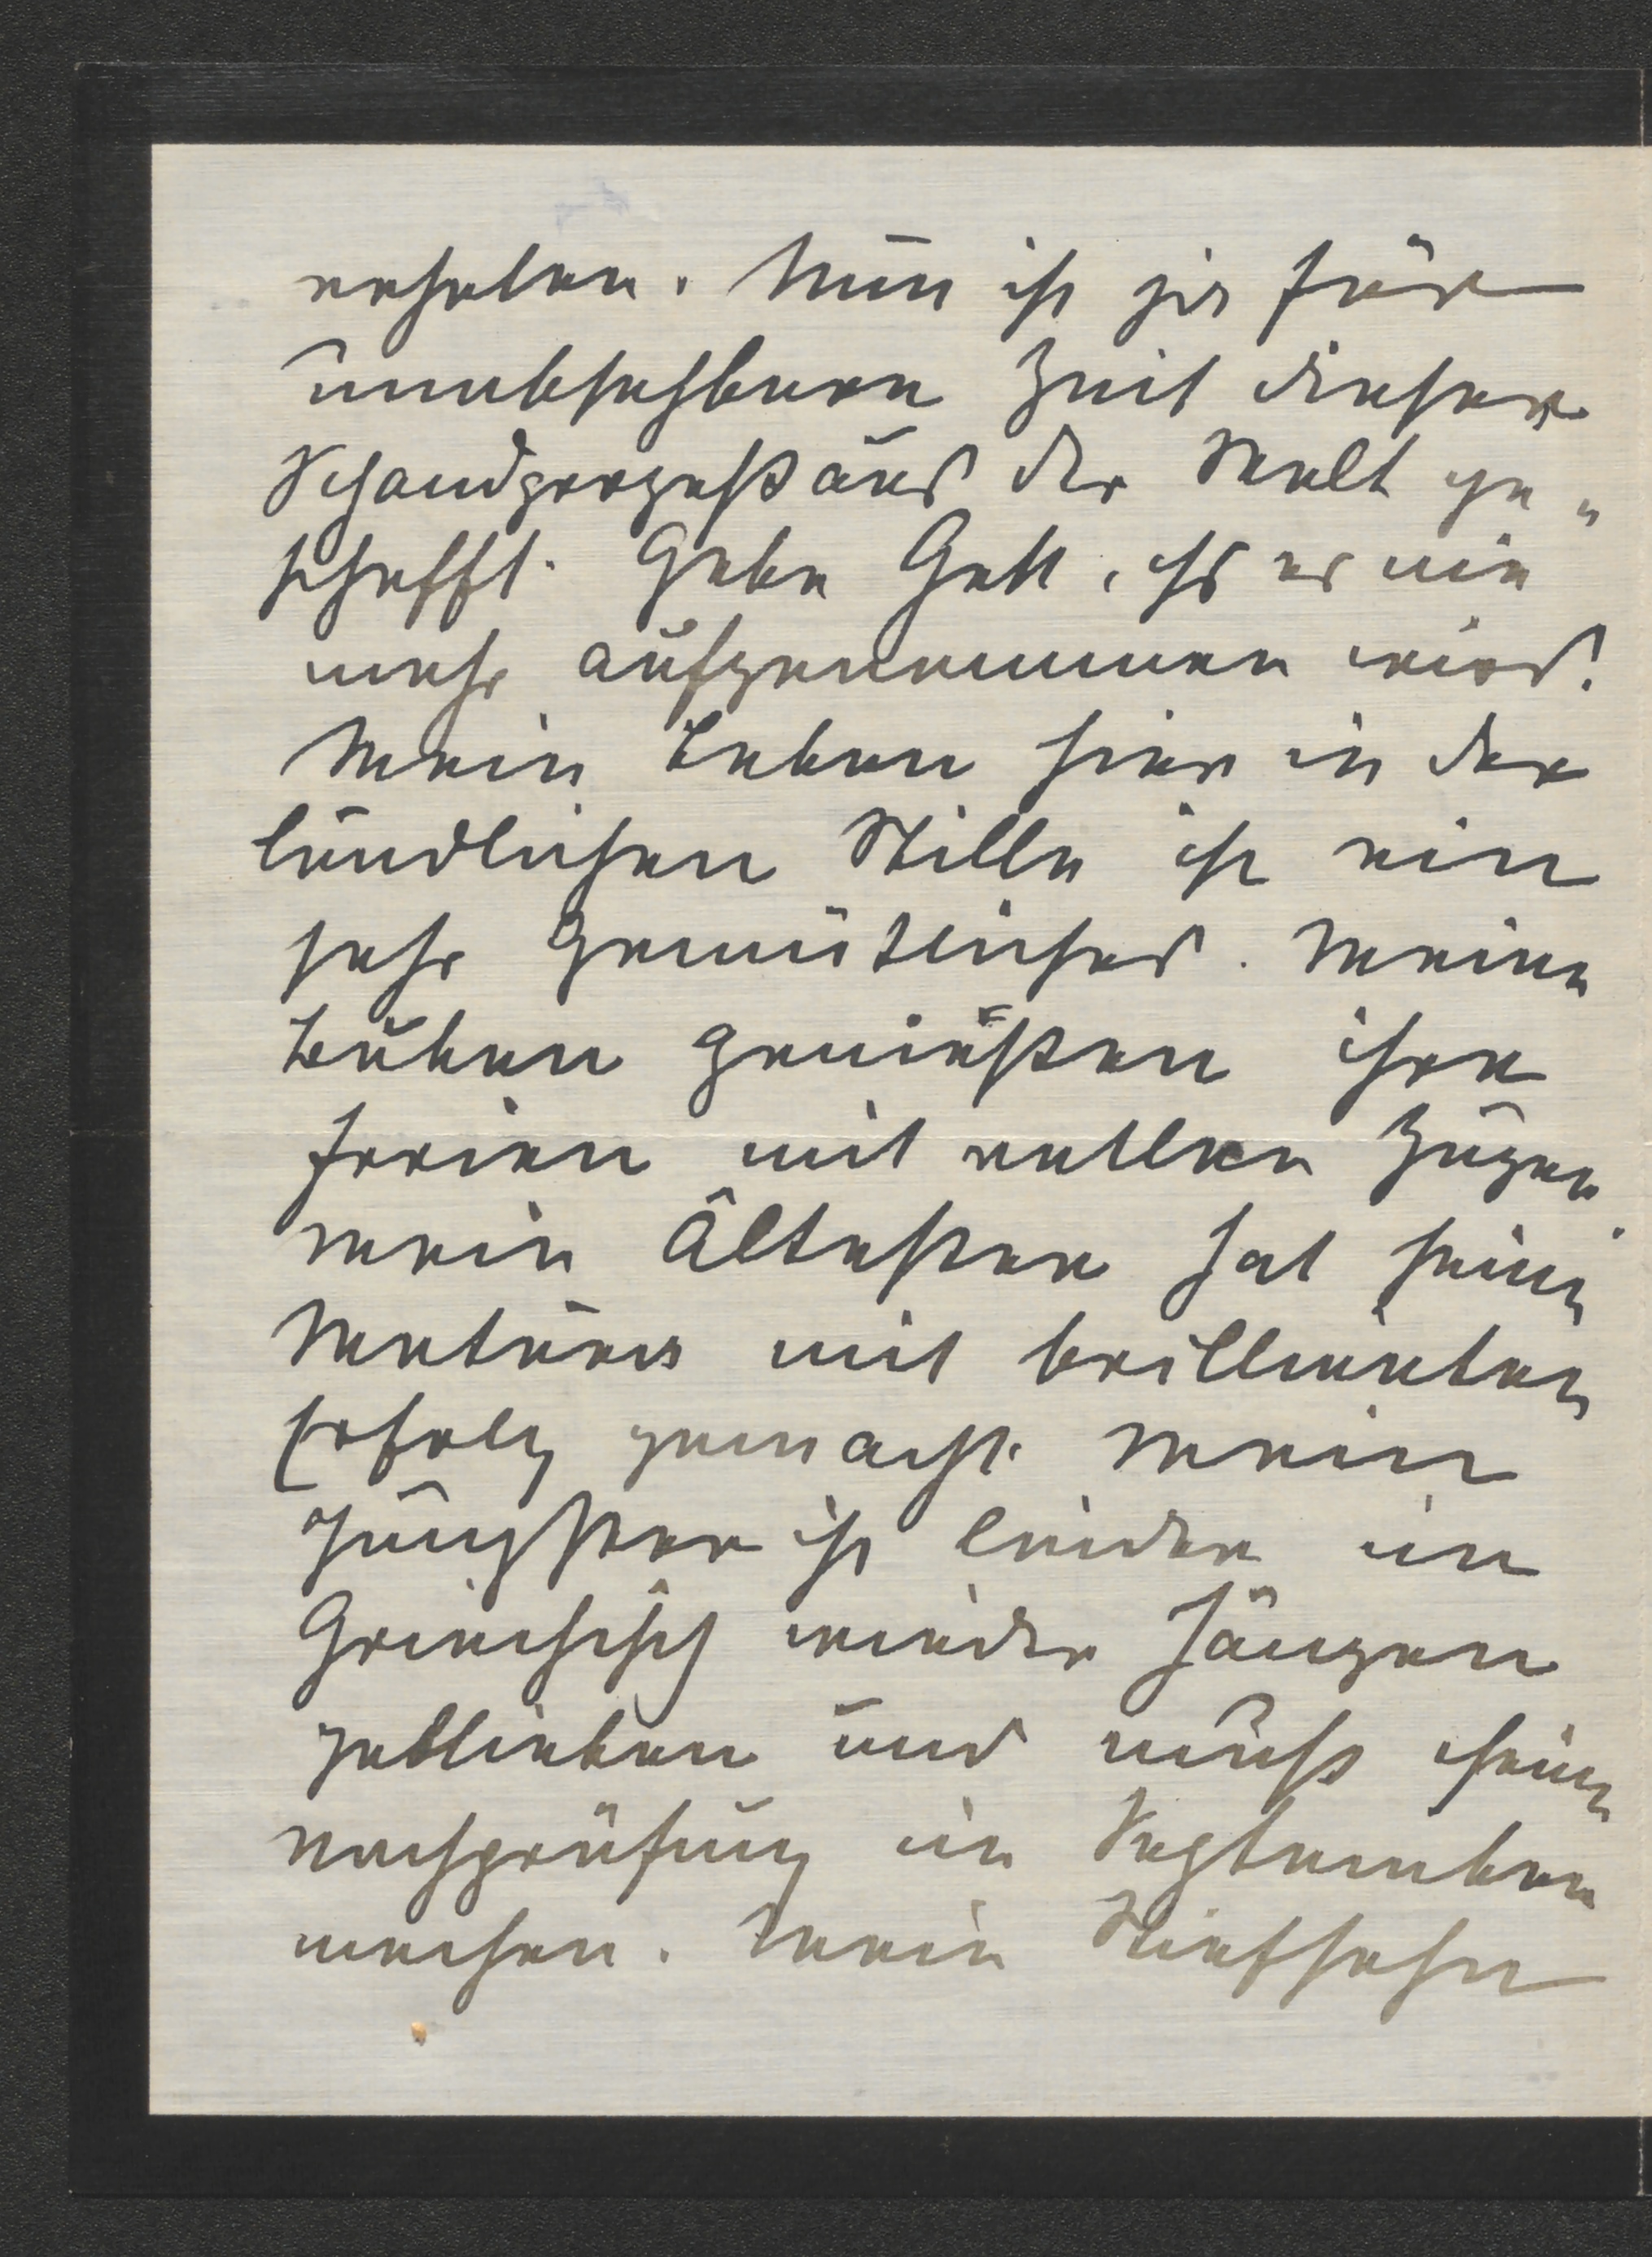 erholen. Nun ist ja für
unabsehbare Zeit dieser
Schandprozeß aus der Welt ge„
schafft. Gebe Gott, daß er nie
mehr aufgenommen wird!
Mein Leben hier in der
ländlichen Stille ist ein
sehr Gemütliches. Meine
Buben genießen ihre
Ferien mit vollen Zügen.
Mein Ältester hat seine
Matura mit brillianten
Erfolg gemacht. Mein
Jüngster ist leider in
Griechisch wieder hängen
geblieben und muß seine
Nachprüfung im September
machen. Mein Stiefsohn